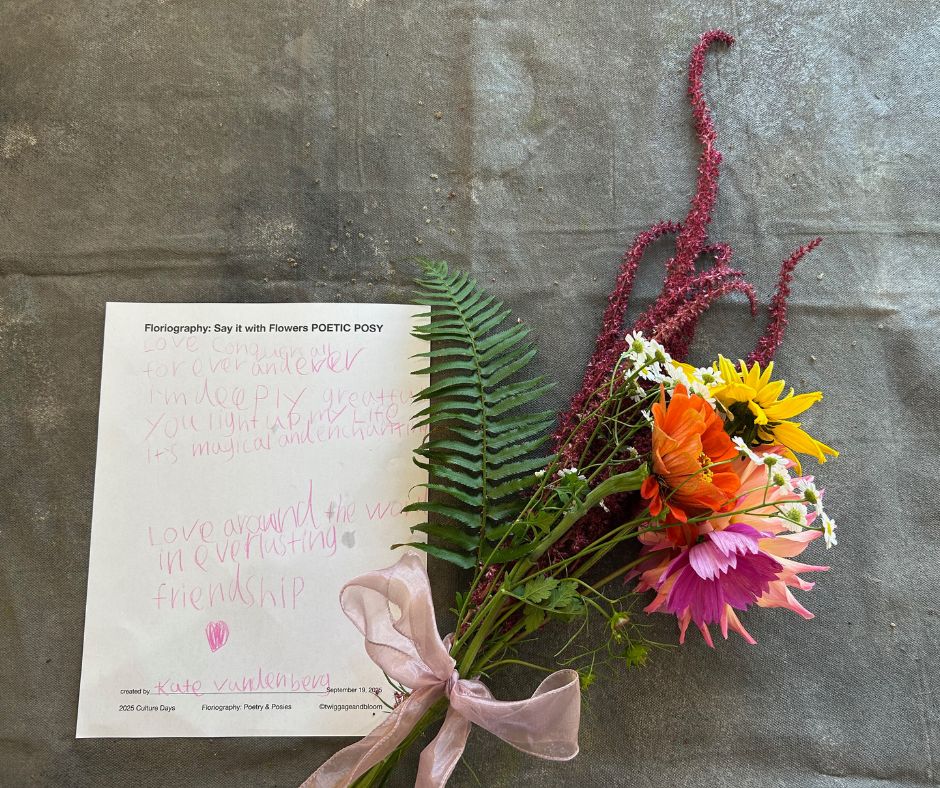 Floriography: Say it with Flowers POETIC POSY
LOVE conquers all
for ever and ever
I'm deeply
You light up my Life
it's magical and
Love around the
in everlasting
friendship
created by Kate Vandenberg September 19, 2025
2025 Culture Days Floriography: Poetry & Posies ©twiggageandbloom